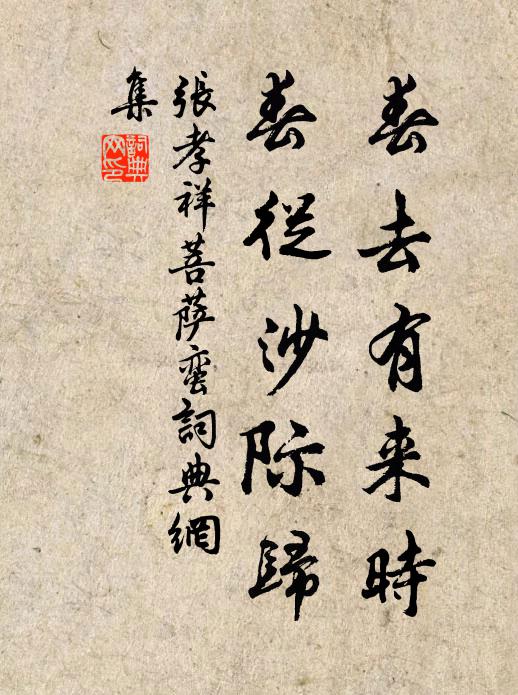 春去有来時
春從沙际歸
張孝祥菩薩蠻詞典網
集
詞典
网印